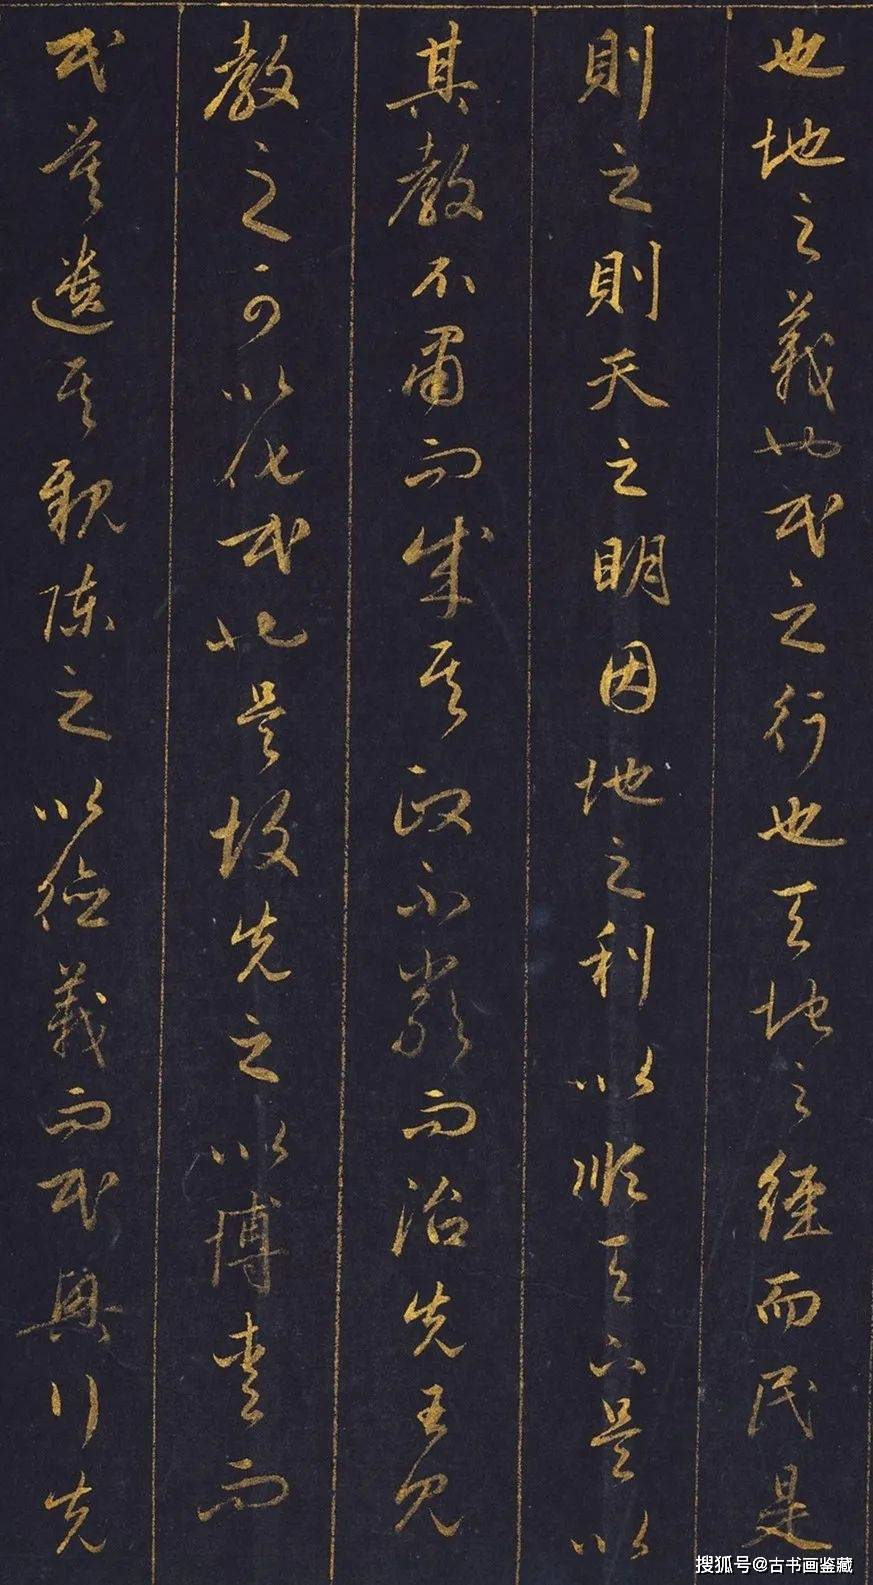 也地之義也民之行也天地之經而民是
則之則天之明因地之利以順天下是以
其教不肅而成其政不嚴而治先王見
教之可以化民也是故先之以博愛而
民莫遺其親陳之以德義而民興行先
搜狐号@古书画鉴藏